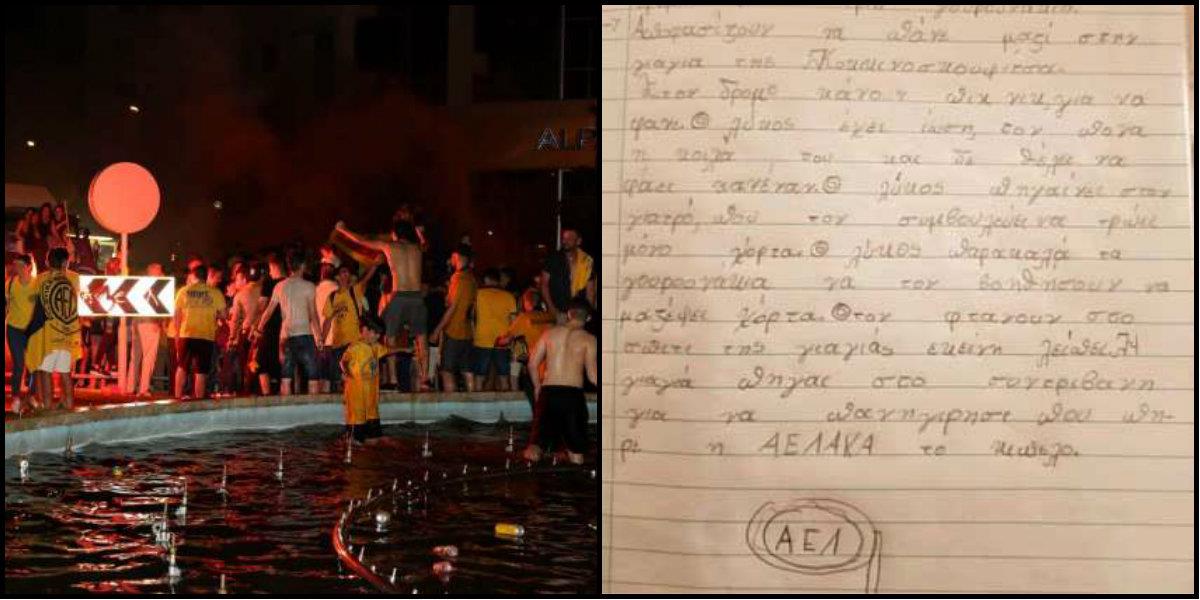 ALP
γουρουνάκια.
Αποφασίζουν να πάνε μαζί στην
γιαγιά της Κοκκινοσκουφίτσα.
Στον δρομο κάνουν πικ νικ, για να
φανε. Ο λύκος έχει ίωση, τον πονα
η κοιλα του και δε θέλει να
φάει κανέναν. Ο λύκος πηγαίνει στον
γιατρό, που τον συμβουλεύει να τρώει
μόνο χόρτα. Ο λύκος παρακαλά τα
γουρουνάκια να τον βοηθήσουν να
μαζέψει χόρτα. Οταν φτανουν στο
σπίτι της γιαγιάς εκείνη λείπει. Η
γιαγιά πήγαε στο συντριβανη
για να πανηγιρησει που πη-
ρε η ΑΕΛΑΚΑ το κυπελο.
ΑΕΛ